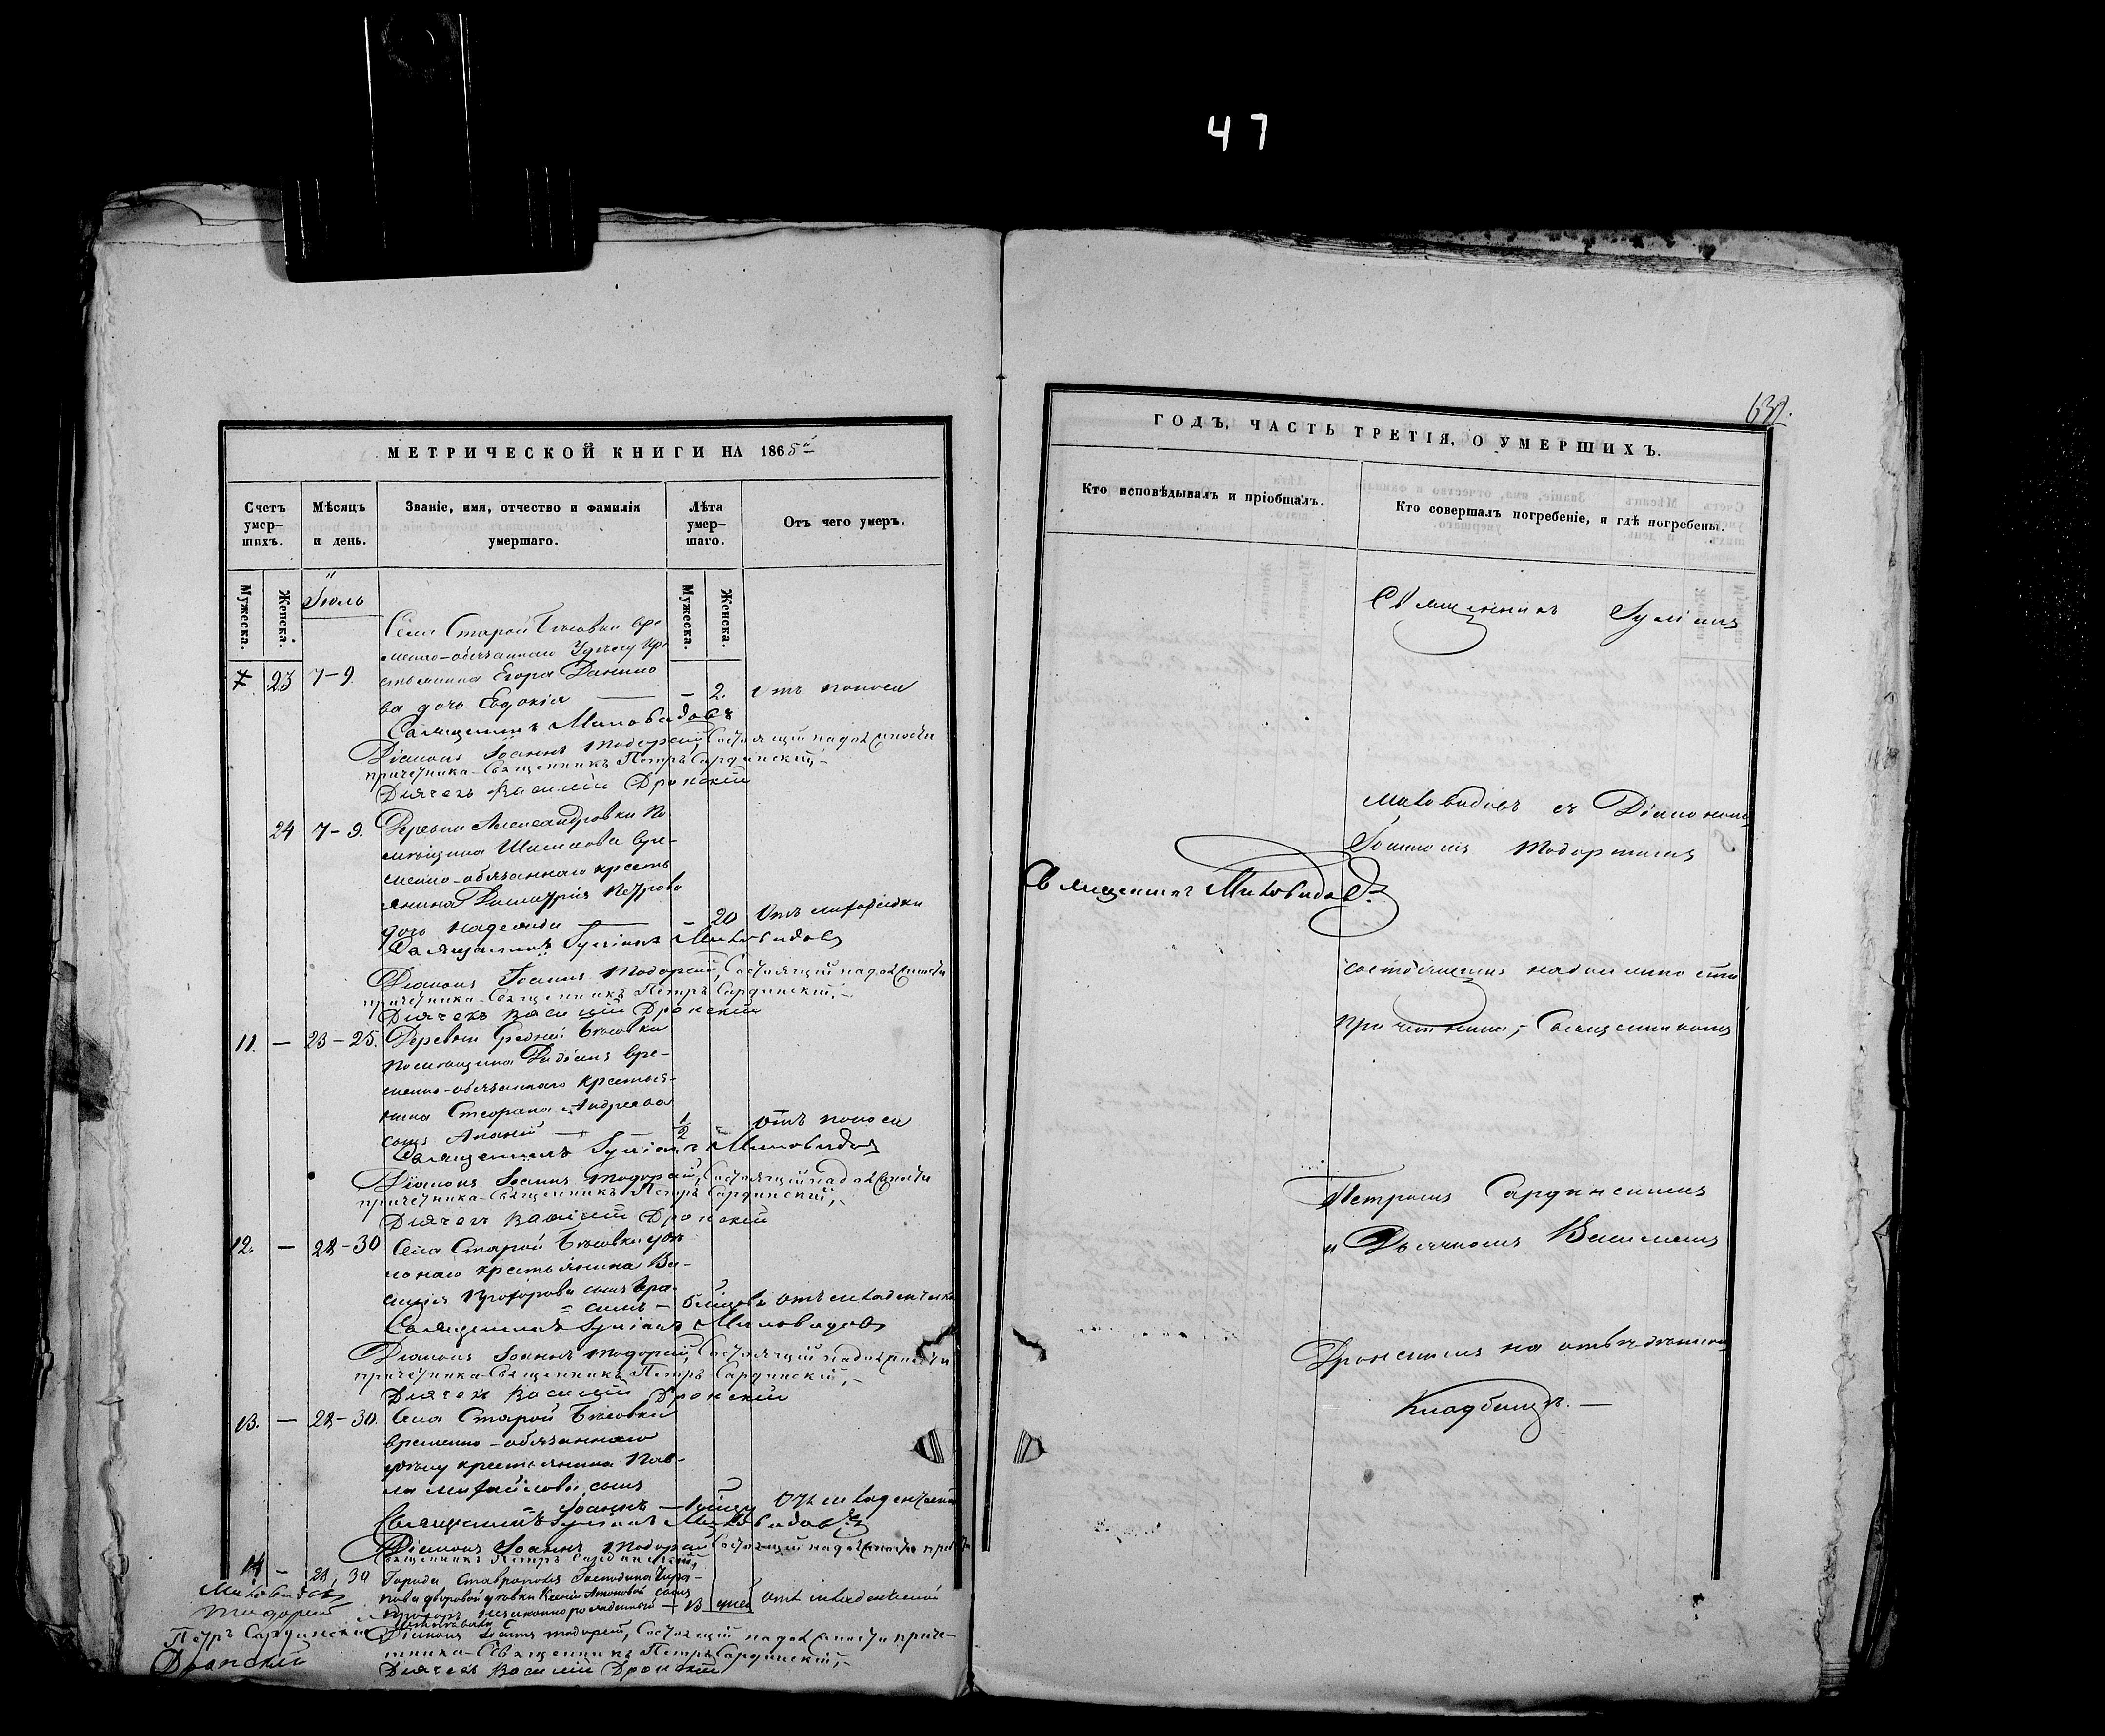 47
МЕТРИЧЕСКОЙ КНИГИ НА 1865й
Счетъ умер-шихъ.
Мѣсяцъ и день.
Званіе, имя, отчество и фамилія умершаго.
Лѣта умер-шаго.
Отъ чего умеръ.
Мужеска.
Женска.
Іюль
Мужеска.
Женска.
Села Старой Бесовки вре-
менно-обязаннаго Удѣлу кре-
7 23 7-9 стьянина Егора Данило
ва дочь Евдокія — - 2. Отъ поноса
Священникъ Миловидовъ
Діаконъ Іоаннъ Тодорскій, Состоящій на должности
причетника-Священникъ Петръ Сардинскій,-
Дьячекъ Василій Дронскій
24 7-9. Деревни Александровки по
мѣщика Шишкова вре-
менно-обязаннаго кресть
янина Димитрія Петрова
дочь Надежда — - 20 Отъ лихорадки
Священникъ Іуліанъ Миловидовъ
Діаконъ Іоаннъ Тодорскій, Состоящій на должности
причетника-Священникъ Петръ Сардинскій,-
Дьячекъ Василій Дронскій
11. - 23-25. Деревни Средней Бесовки
помѣщика вре-
менно-обязаннаго крестья-
нина Стефана Андреева
сынъ Ананій — 1/2 - отъ поноса
Священникъ Іуліанъ Миловидовъ
Діаконъ Іоаннъ Тодорскій, Состоящій на должности
причетника-Священникъ Петръ Сардинскій,-
Дьячекъ Василій Дронскій
12. - 28-30 Села Старой Бесовки удѣ
льнаго крестьянина Ва-
силія Прохорова сынъ Гера-
= симъ - отъ младенческой
Священникъ Іуліанъ Миловидовъ
Діаконъ Іоаннъ Тодорскій, Состоящій на должности
причетника-Священникъ Петръ Сардинскій,-
Дьячекъ Василій Дронскій
13. - 28-30. Села Старой Бесовки
временно-обязаннаго
удѣлу крестьянина Пав-
ла Михайлова сынъ
= Іоаннъ - Отъ младенческой
Священникъ Іуліанъ Миловидовъ
Діаконъ Іоаннъ Тодорскій Состоящій на должности
Священникъ Петръ Сардинскій,
14 - 28, 30 Города Ставрополя Господина
дворовой дѣвки Ксеніи сынъ
незаконнорожденный - 13 дней Отъ младенческой
Миловидовъ
Тодорскій
Петръ Сардинскій
Дронскій
Діаконъ Іоаннъ Тодорскій, Состоящій на должности приче-
тника-Священникъ Петръ Сардинскій,-
Дьячекъ Василій Дронскій
ГОДЪ, ЧАСТЬ ТРЕТІЯ, О УМЕРШИХЪ.
Кто исповѣдывалъ и пріобщалъ.
Кто совершалъ погребеніе, и гдѣ погребены.
Священникъ Миловидовъ
Священникъ Іуліанъ
Миловидовъ съ Діакономъ
Іоанномъ Тодорскимъ
состоящимъ на должности
причетника,- Священникомъ
Петромъ Сардинскимъ
и Дьячкомъ Василіемъ
Дронскимъ на отведенномъ
Кладбищѣ. —